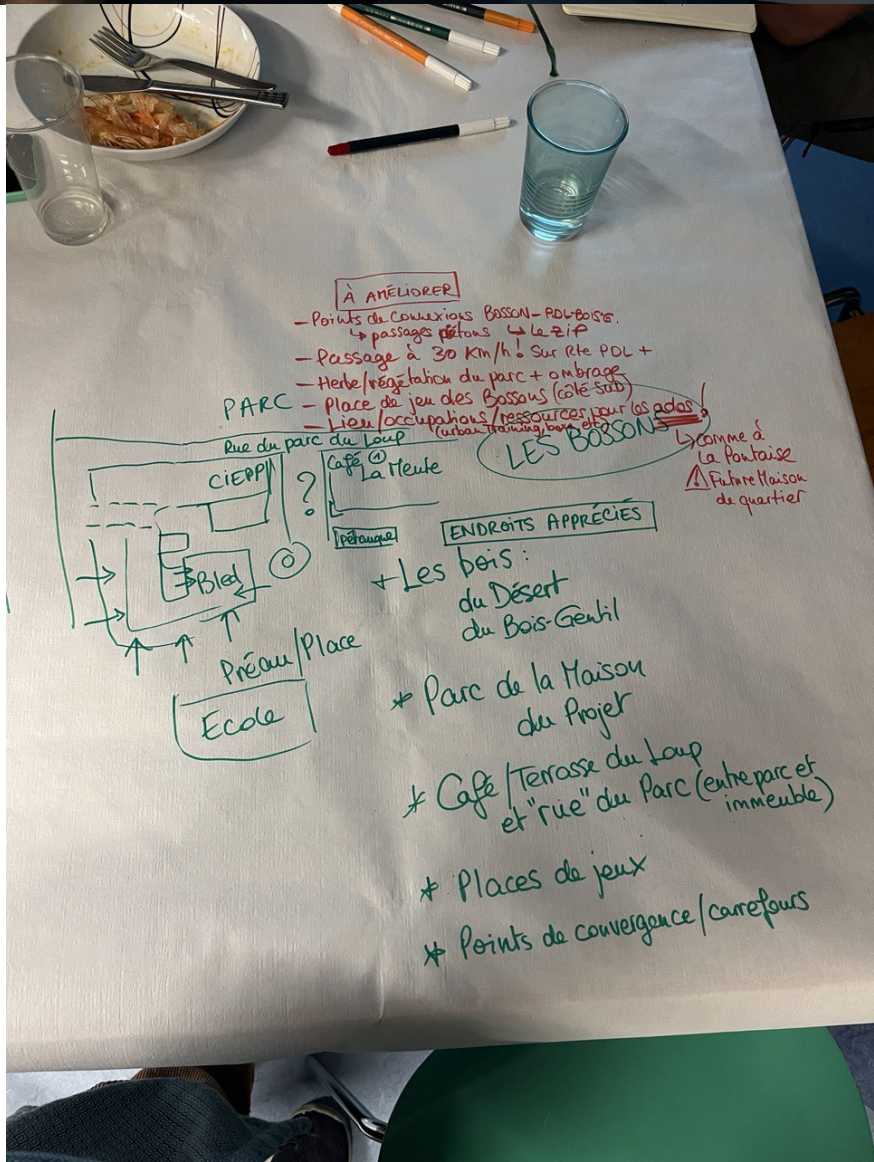 À AMÉLIORER
— Points de connexions BOSSON – PDL-BOISG.
↳ passages piétons ↳ le zip
— Passage à 30 Km/h ! Sur Rte PDL +
— Herbe/végétation du parc + ombrage
— Place de jeu des Bossons (côté Sud)
— Lieu/occupations/ressources pour les ados !
(urban training, bara, etc)
↳ comme à
la Pontaise
⚠ Future Maison
de quartier
LES BOSSONS
PARC
Rue du parc du Loup
CIEPP
?
Café ①
La Meute
Pétanque
Bled
Préau/Place
Ecole
ENDROITS APPRÉCIÉS
+ Les bois :
du Désert
du Bois-Gentil
* Parc de la Maison
du Projet
* Café/Terrasse du Loup
et "rue" du Parc (entre parc et
immeuble)
* Places de jeux
* Points de convergence/carrefours